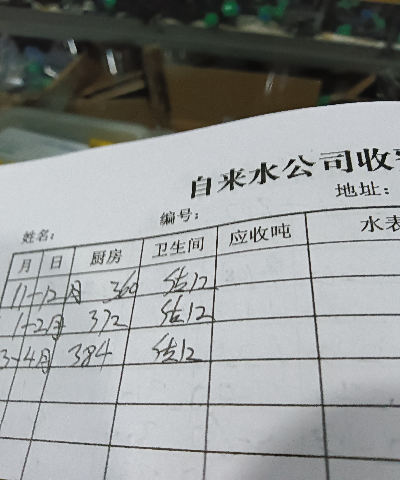 自来水公司收
地址：
姓名： 编号：
月 日 厨房 卫生间 应收吨 水表
11-12月 360 估12
1-2月 372 估12
3-4月 384 估12